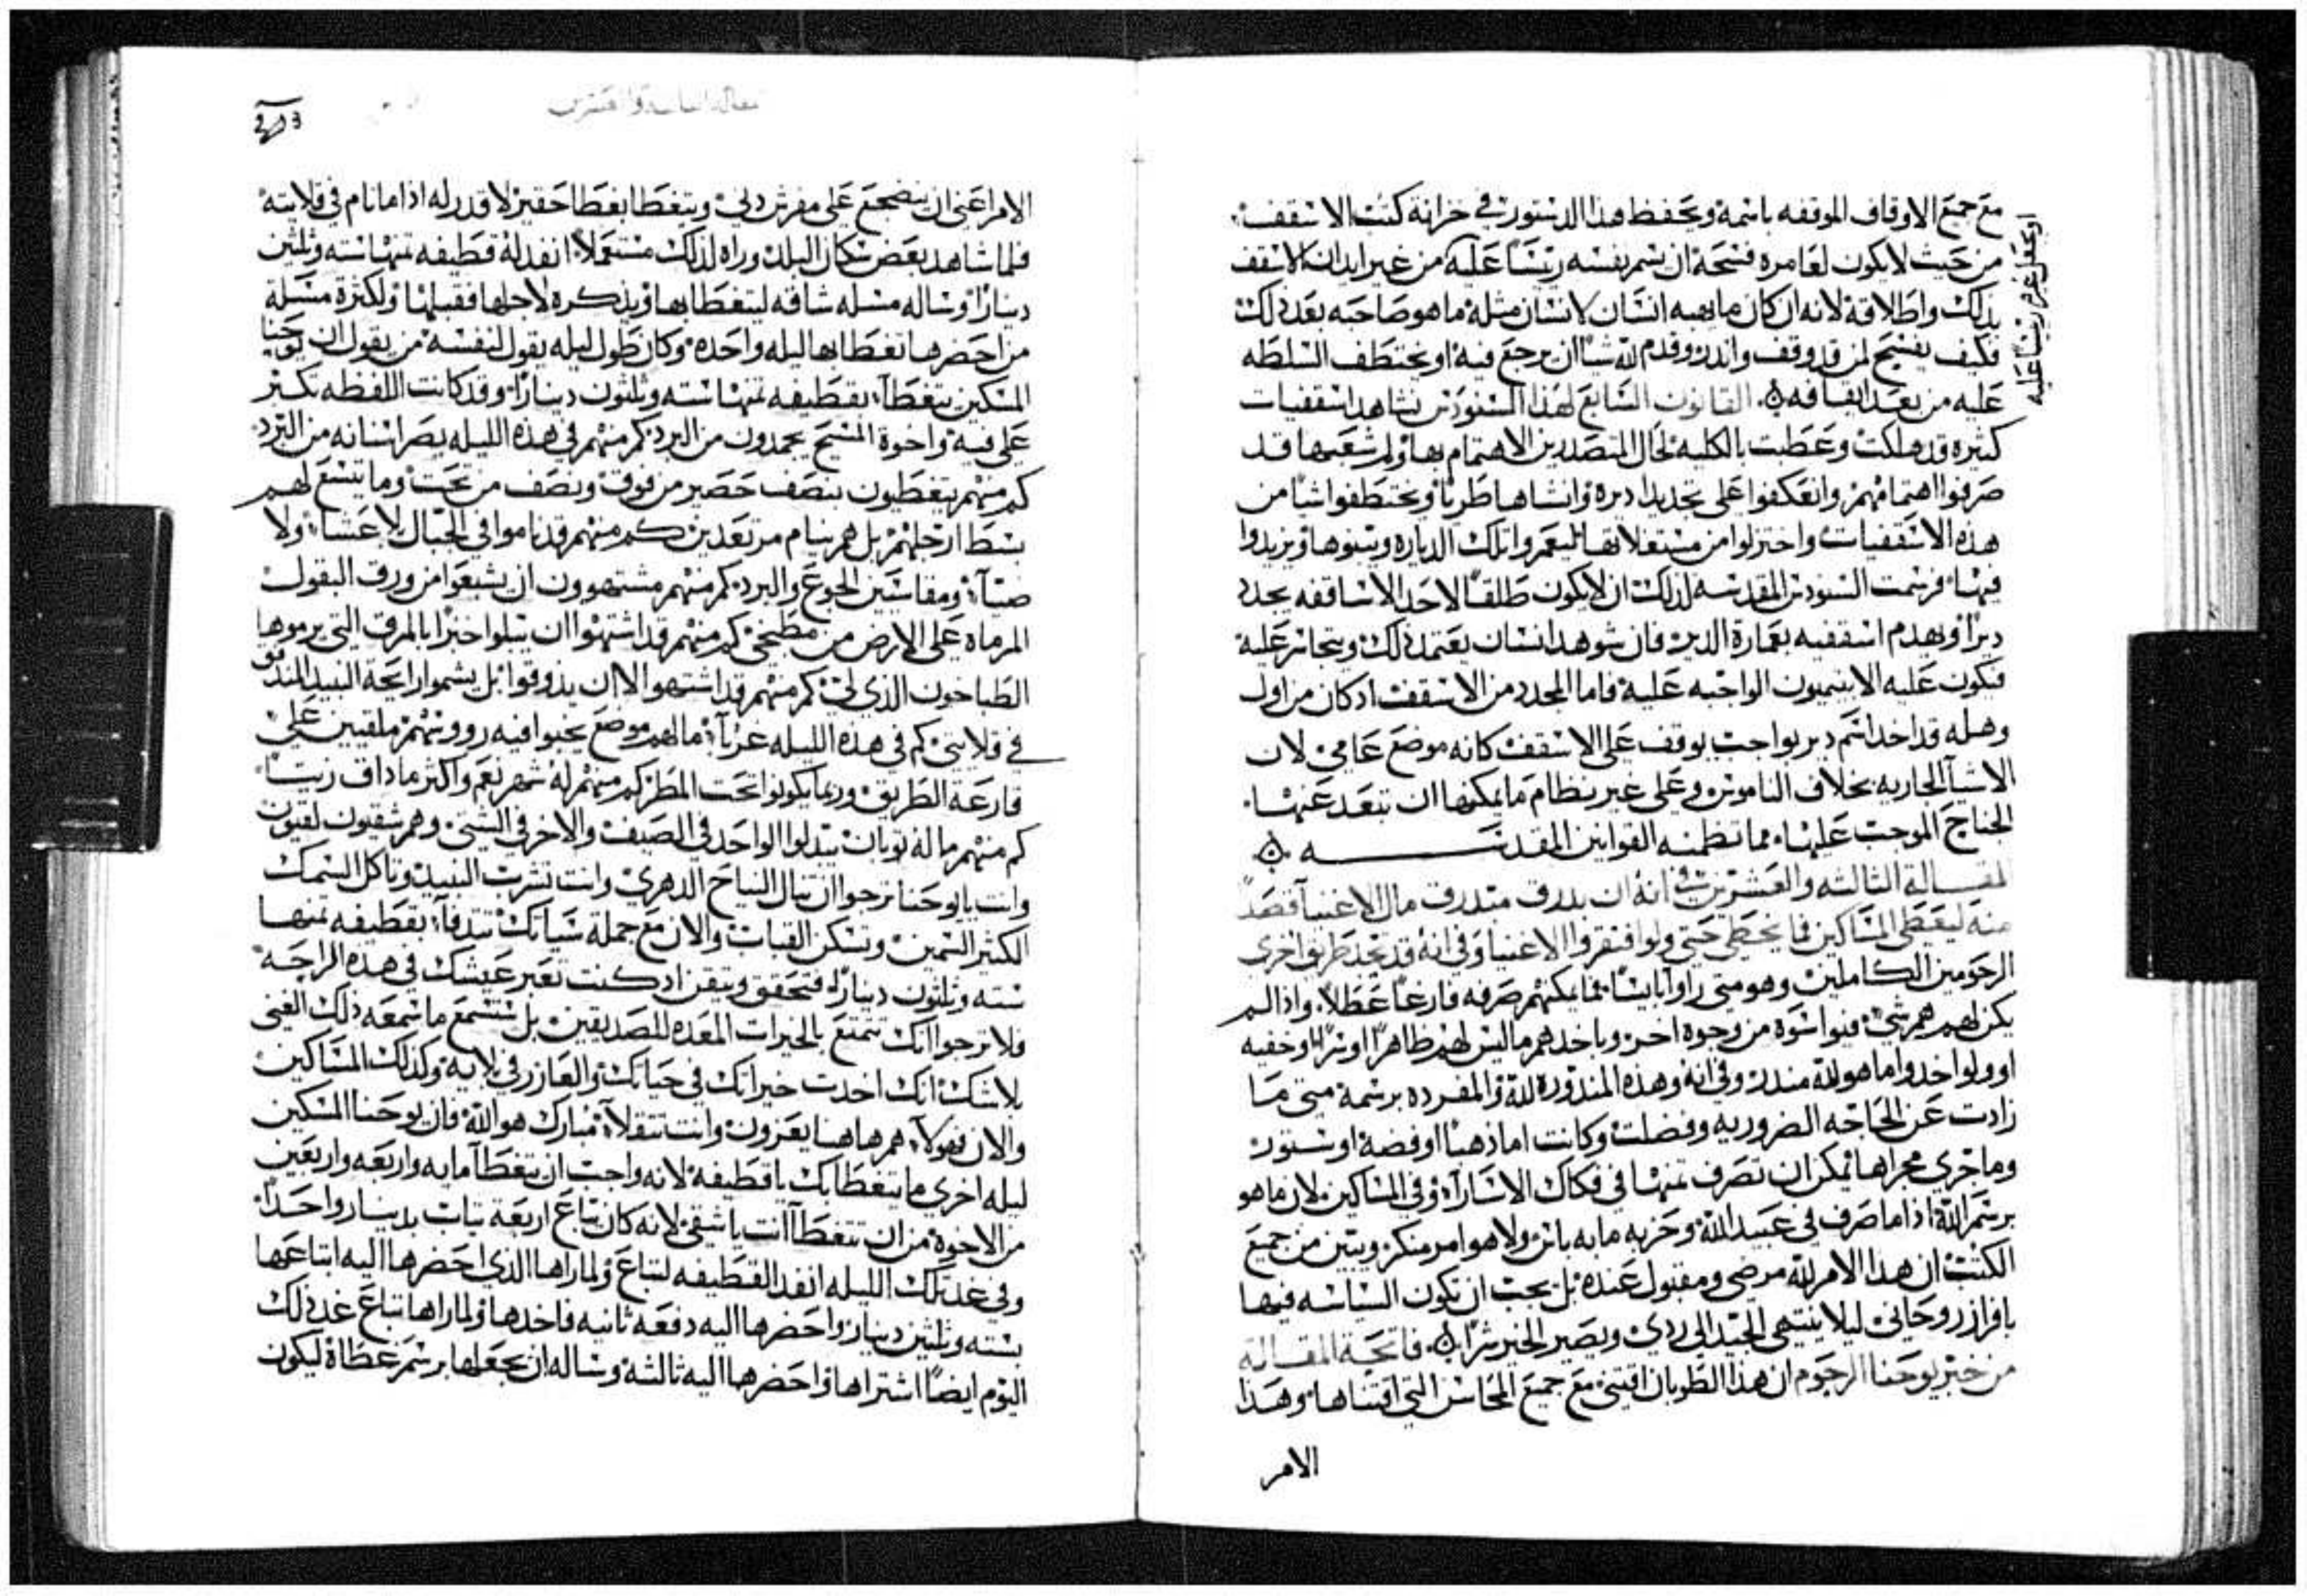 مع جميع الاوقاف الموقفه باسمه ويحفظ هذا الدستور في خزانة كتب الاسقف
من حيث لا يكون لعامره فسحة ان يسم نفسه رئيسًا عليه من غير ايدان الاسقف
بذلك واطلاقه لانه ان كان ما يهبه انسان لانسان مثله ما هو صاحبه بعد ذلك
فكيف يفسح لمن قد وقف واندر وقدم لله شيًا ان يرجع فيه او يختطف السلطه
عليه من بعد ايقافه القانون السابع لهذا السنودس نشاهد اسقفيات
كثيره قد هلكت وعطبت بالكليه لحال المتصدرين الاهتمام بها ولم شعبها قد
صرفوا اهتمامهم وانعكفوا على تجديد اديره وانشاها طريًا ويختطفوا شيًا من
هذه الاسقفيات واختزلوا من مستغلاتها ليعمروا تلك الدياره وينوها ويزيدوا
فيها فرسمت السنودس المقدسه لذلك ان لا يكون طلقًا لاحد الاساقفه يجدد
ديرًا ويهدم اسقفيه بعمارة الدير فان شوهد انسان يعتمد ذلك ويتجاسر عليه
فيكون عليه الابيتيميون الواجبه عليه فاما المجدد من الاسقف اد كان من اول
وهله قد اخد اسم دير بواجب يوقف على الاسقف كانه موضع عامي لان
الاشيآ الجاريه بخلاف الناموس وعلى غير نظام ما يمكنها ان تبعد عنها
الجناح الموجب عليها مما تظمنه القوانين المقدسه
المقالة الثالثه والعشرين في انه ان بدرق متدرق مال الاغنيآ قصدً
منه ليعطي المساكين فما يخطي حتي ولو افتقروا الاغنيا وفي انه قد تجد طريق اخرى
الرحومين الكاملين وهو متى راوا بايسًا فما يمكنهم صرفه فارغًا عطلاً واذا لم
يكن لهم هم شي فيواسوه من وجوه اخر وياخدهم ما ليس لهم ظاهرًا او سرًا وخفيه
او ولو اخدوا ما هو لله مندر وفي انه وهذه المندوره لله والمفرده برسمه متى ما
زادت عن الحاجه الضروريه وفضلت وكانت اما ذهبًا او فضه او ستور
وما جري مجراها يمكن ان تصرف تمنها في فكاك الاسارآ وفي المساكين لان ما هو
برسم الله اذا ما صرف في عبيد الله وحزبه ما به باس ولا هو امر منكر ويتبين من جميع
الكتب ان هدا الامر لله مرضي ومقبول عنده بل يجب ان تكون السياسه فيها
بافراز روحاني ليلا ينتهي الجيد الى ردي ويصير الخير شرًا فاتحة المقاله
من خبر يوحنا الرحوم ان هذا الطوبان اقتني مع جميع المحاسن التي اقتناها وهدا
الامر
او يجعل غيره رييسًا عليه
الامر اعني ان ينضجع على مفرش دني ويتغطا بغطا حقير لا قدر له اذا ما نام في قلايته
فلما شاهد بعض سكان البلد وراه لذلك مستعملاً انفد له قطيفه تمنها سته وثلثين
دينارًا وساله مسله شاقه ليتغطا بها ويذكره لاجلها فقبلها ولكثرة مسلة
من احضرها تغطا بها ليله واحده وكان طول ليله يقول لنفسه من يقول ان يوحنا
المسكين يتغطا بقطيفه تمنها سته وثلثون دينارًا وقد كانت اللفظه تكتر
على فيه واخوة المسيح يجمدون من البرد كم منهم في هذه الليله يصر اسنانه من البرد
كم منهم يتغطيون بنصف حصير من فوق ونصف من تحت وما يتسع لهم
بسط ارجلهم بل هم ينام مرتعدين كم منهم قد ناموا في الجبال بلا عشا ولا
ضيآ ومقاسيين الجوع والبرد كم منهم مشتهوون ان يشبعوا من ورق البقول
المرماه على الارض من مطبخي كم منهم قد اشتهوا ان يبلوا خبزًا بالمرق التي يرموها
الطباخون الذي لي كم منهم قد اشتهوا الا ان يذوقوا بل يشموا رايحة النبيد المندفق
في قلايتي كم في هذه الليله غربآ ما لهم موضع يحنوا فيه رووسهم ملقيين على
قارعة الطريق وربما يكونوا تحت المطر كم منهم له شهر نعم واكثر ما داق زيتًا
كم منهم ما له توبان يبدلوا الواحد في الصيف والاخر في الشتي وهم شقيون لقيون
وانت يا يوحنا ترجوا ان تنال النياح الدهري وانت تشرب النبيد وتاكل السمك
الكثير الثمين وتسكن القبات والان مع جملة سياتك تتدفآ بقطيفه تمنها
سته وثلثون دينارًا فتحقق وتيقن اد كنت تعبر عيشك في هذه الراحه
فلا ترجوا انك تتمتع بالخيرات المعده للصديقين بل ستسمع ما سمعه ذلك الغني
بلا شك انك اخدت خيراتك في حياتك والعازر في بلايه وكذلك المساكين
والان فهولآ هم هاهنا يعزون وانت تتقلآ مبارك هو الله فان يوحنا المسكين
ليله اخرى ما يتغطا بك يا قطيفه لانه واجب ان يتغطآ مايه واربعه واربعين
من الاخوة من ان تتغطآ انت يا شقي لانه كان يتباع اربعة تياب بدينار واحدًا
وفي غد تلك الليله انفد القطيفه لتباع ولما راها الذي احضرها اليه ابتاعها
بسته وثلثين دينار واحضرها اليه دفعه ثانيه فاخدها ولما راها تباع غد ذلك
اليوم ايضًا اشتراها واحضرها اليه ثالثه وساله ان يجعلها برسم غطاه ليكون